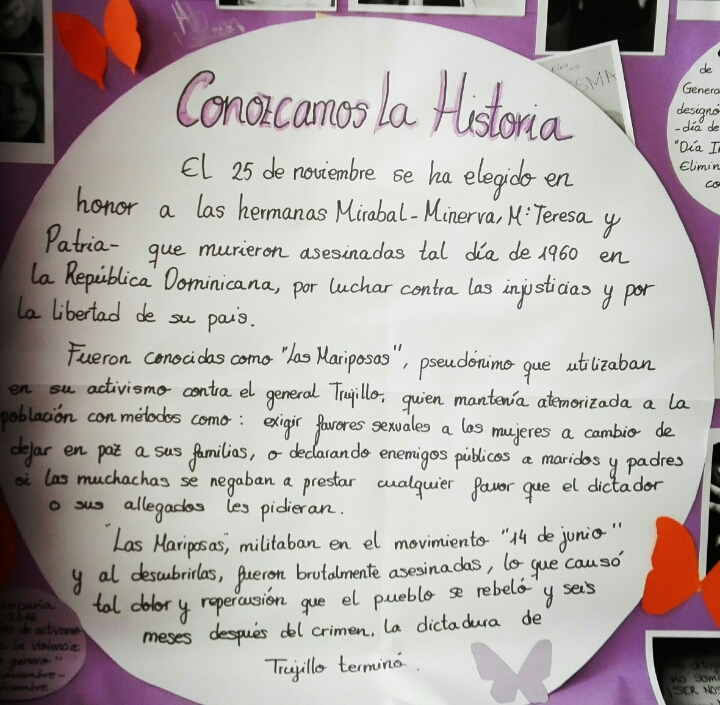 Conozcamos La Historia
El 25 de noviembre se ha elegido en
honor a las hermanas Mirabal-Minerva, Mª Teresa y
Patria- que murieron asesinadas tal día de 1960 en
la República Dominicana, por luchar contra las injusticias y por
la libertad de su pais.
Fueron conocidas como "Las Mariposas", pseudónimo que utilizaban
en su activismo contra el general Trujillo, quien mantenía atemorizada a la
población con métodos como: exigir favores sexuales a las mujeres a cambio de
dejar en paz a sus familias, o declarando enemigos públicos a maridos y padres
si las muchachas se negaban a prestar cualquier favor que el dictador
o sus allegados les pidieran.
"Las Mariposas", militaban en el movimiento "14 de junio"
y al descubrirlas, fueron brutalmente asesinadas, lo que causó
tal dolor y repercusión que el pueblo se rebeló y seis
meses después del crimen, la dictadura de
Trujillo terminó.
de
Genera
designó
-día de
"Día I
Elimin
co
2016
de activismo
la violencia
género"
no som
SER NOS